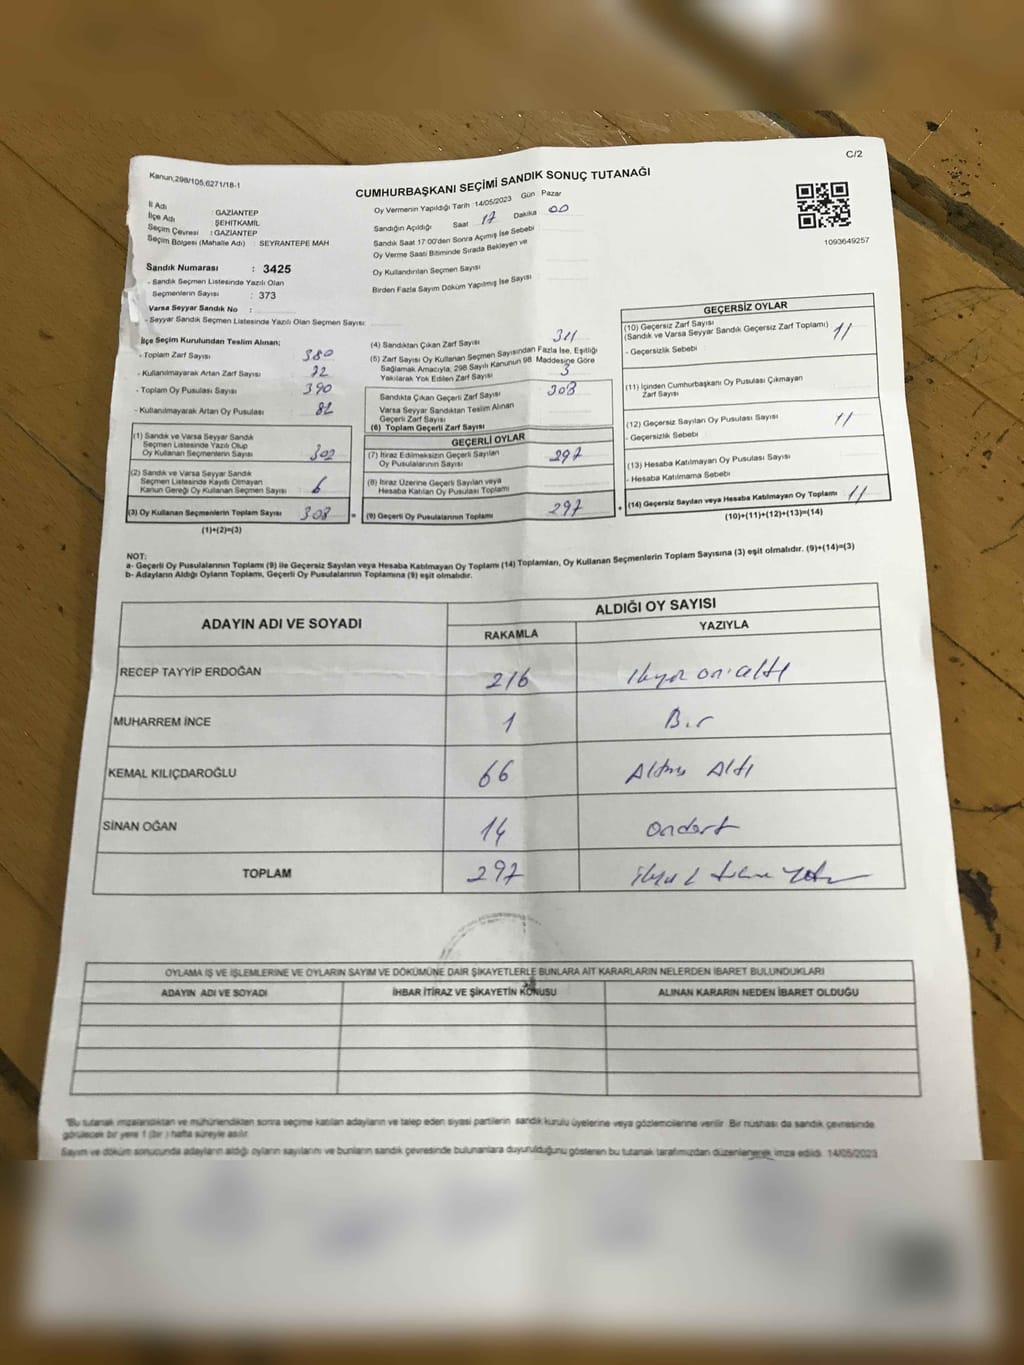 C/2
Kanun,298/105,6271/18-1
CUMHURBAŞKANI SEÇİMİ SANDIK SONUÇ TUTANAĞI
1093649257
İl Adı : GAZİANTEP
İlçe Adı ŞEHİTKAMİL
Seçim Çevresi : GAZİANTEP
Seçim Bölgesi (Mahalle Adı) : SEYRANTEPE MAH
Sandık Numarası : 3425
- Sandık Seçmen Listesinde Yazılı Olan
Seçmenlerin Sayısı : 373
Varsa Seyyar Sandık No :
- Seyyar Sandık Seçmen Listesinde Yazılı Olan Seçmen Sayısı:
Oy Vermenin Yapıldığı Tarih :14/05/2023 Gün Pazar
Sandığın Açıldığı Saat 17 Dakika 00
Sandık Saat 17:00'den Sonra Açılmış İse Sebebi
Oy Verme Saati Bitiminde Sırada Bekleyen ve
Oy Kullandırılan Seçmen Sayısı
Birden Fazla Sayım Döküm Yapılmış İse Sayısı
İlçe Seçim Kurulundan Teslim Alınan;
- Toplam Zarf Sayısı 380
- Kullanılmayarak Artan Zarf Sayısı 72
- Toplam Oy Pusulası Sayısı 390
- Kullanılmayarak Artan Oy Pusulası 82
(1) Sandık ve Varsa Seyyar Sandık
Seçmen Listesinde Yazılı Olup
Oy Kullanan Seçmenlerin Sayısı 302
(2) Sandık ve Varsa Seyyar Sandık
Seçmen Listesinde Kayıtlı Olmayan
Kanun Gereği Oy Kullanan Seçmen Sayısı 6
(3) Oy Kullanan Seçmenlerin Toplam Sayısı 308
(1)+(2)=(3)
(4) Sandıktan Çıkan Zarf Sayısı 311
(5) Zarf Sayısı Oy Kullanan Seçmen Sayısından Fazla İse, Eşitliği
Sağlamak Amacıyla; 298 Sayılı Kanunun 98. Maddesine Göre
Yakılarak Yok Edilen Zarf Sayısı 3
Sandıkta Çıkan Geçerli Zarf Sayısı 308
Varsa Seyyar Sandıktan Teslim Alınan
Geçerli Zarf Sayısı
(6) Toplam Geçerli Zarf Sayısı
GEÇERLİ OYLAR
(7) İtiraz Edilmeksizin Geçerli Sayılan
Oy Pusulalarının Sayısı 297
(8) İtiraz Üzerine Geçerli Sayılan veya
Hesaba Katılan Oy Pusulası Toplamı
(9) Geçerli Oy Pusulalarının Toplamı 297
GEÇERSİZ OYLAR
(10) Geçersiz Zarf Sayısı
(Sandık ve Varsa Seyyar Sandık Geçersiz Zarf Toplamı) 11
- Geçersizlik Sebebi
(11) İçinden Cumhurbaşkanı Oy Pusulası Çıkmayan
Zarf Sayısı
(12) Geçersiz Sayılan Oy Pusulası Sayısı 11
- Geçersizlik Sebebi
(13) Hesaba Katılmayan Oy Pusulası Sayısı
- Hesaba Katılmama Sebebi
(14) Geçersiz Sayılan veya Hesaba Katılmayan Oy Toplamı 11
(10)+(11)+(12)+(13)=(14)
NOT:
a- Geçerli Oy Pusulalarının Toplamı (9) ile Geçersiz Sayılan veya Hesaba Katılmayan Oy Toplamı (14) Toplamları, Oy Kullanan Seçmenlerin Toplam Sayısına (3) eşit olmalıdır. (9)+(14)=(3)
b- Adayların Aldığı Oyların Toplamı, Geçerli Oy Pusulalarının Toplamına (9) eşit olmalıdır.
ADAYIN ADI VE SOYADI ALDIĞI OY SAYISI
RAKAMLA YAZIYLA
RECEP TAYYİP ERDOĞAN 216 İkiyüz onaltı
MUHARREM İNCE 1 Bir
KEMAL KILIÇDAROĞLU 66 Altmış Altı
SİNAN OĞAN 14 ondört
TOPLAM 297
OYLAMA İŞ VE İŞLEMLERİNE VE OYLARIN SAYIM VE DÖKÜMÜNE DAİR ŞİKAYETLERLE BUNLARA AİT KARARLARIN NELERDEN İBARET BULUNDUKLARI
ADAYIN ADI VE SOYADI İHBAR İTİRAZ VE ŞİKAYETİN KONUSU ALINAN KARARIN NEDEN İBARET OLDUĞU
"Bu tutanak imzalandıktan ve mühürlendikten sonra seçime katılan adayların ve talep eden siyasi partilerin sandık kurulu üyelerine veya gözlemcilerine verilir. Bir nüshası da sandık çevresinde
görülecek bir yere 1 (bir ) hafta süreyle asılır.
Sayım ve döküm sonucunda adayların aldığı oyların sayılarını ve bunların sandık çevresinde bulunanlara duyurulduğunu gösteren bu tutanak tarafımızdan düzenlenerek imza edildi. 14/05/2023